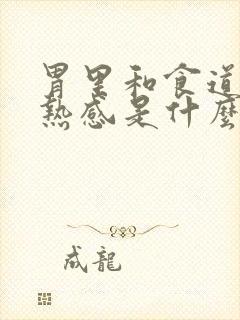 胃里和食道
熱感是什麼
成龍